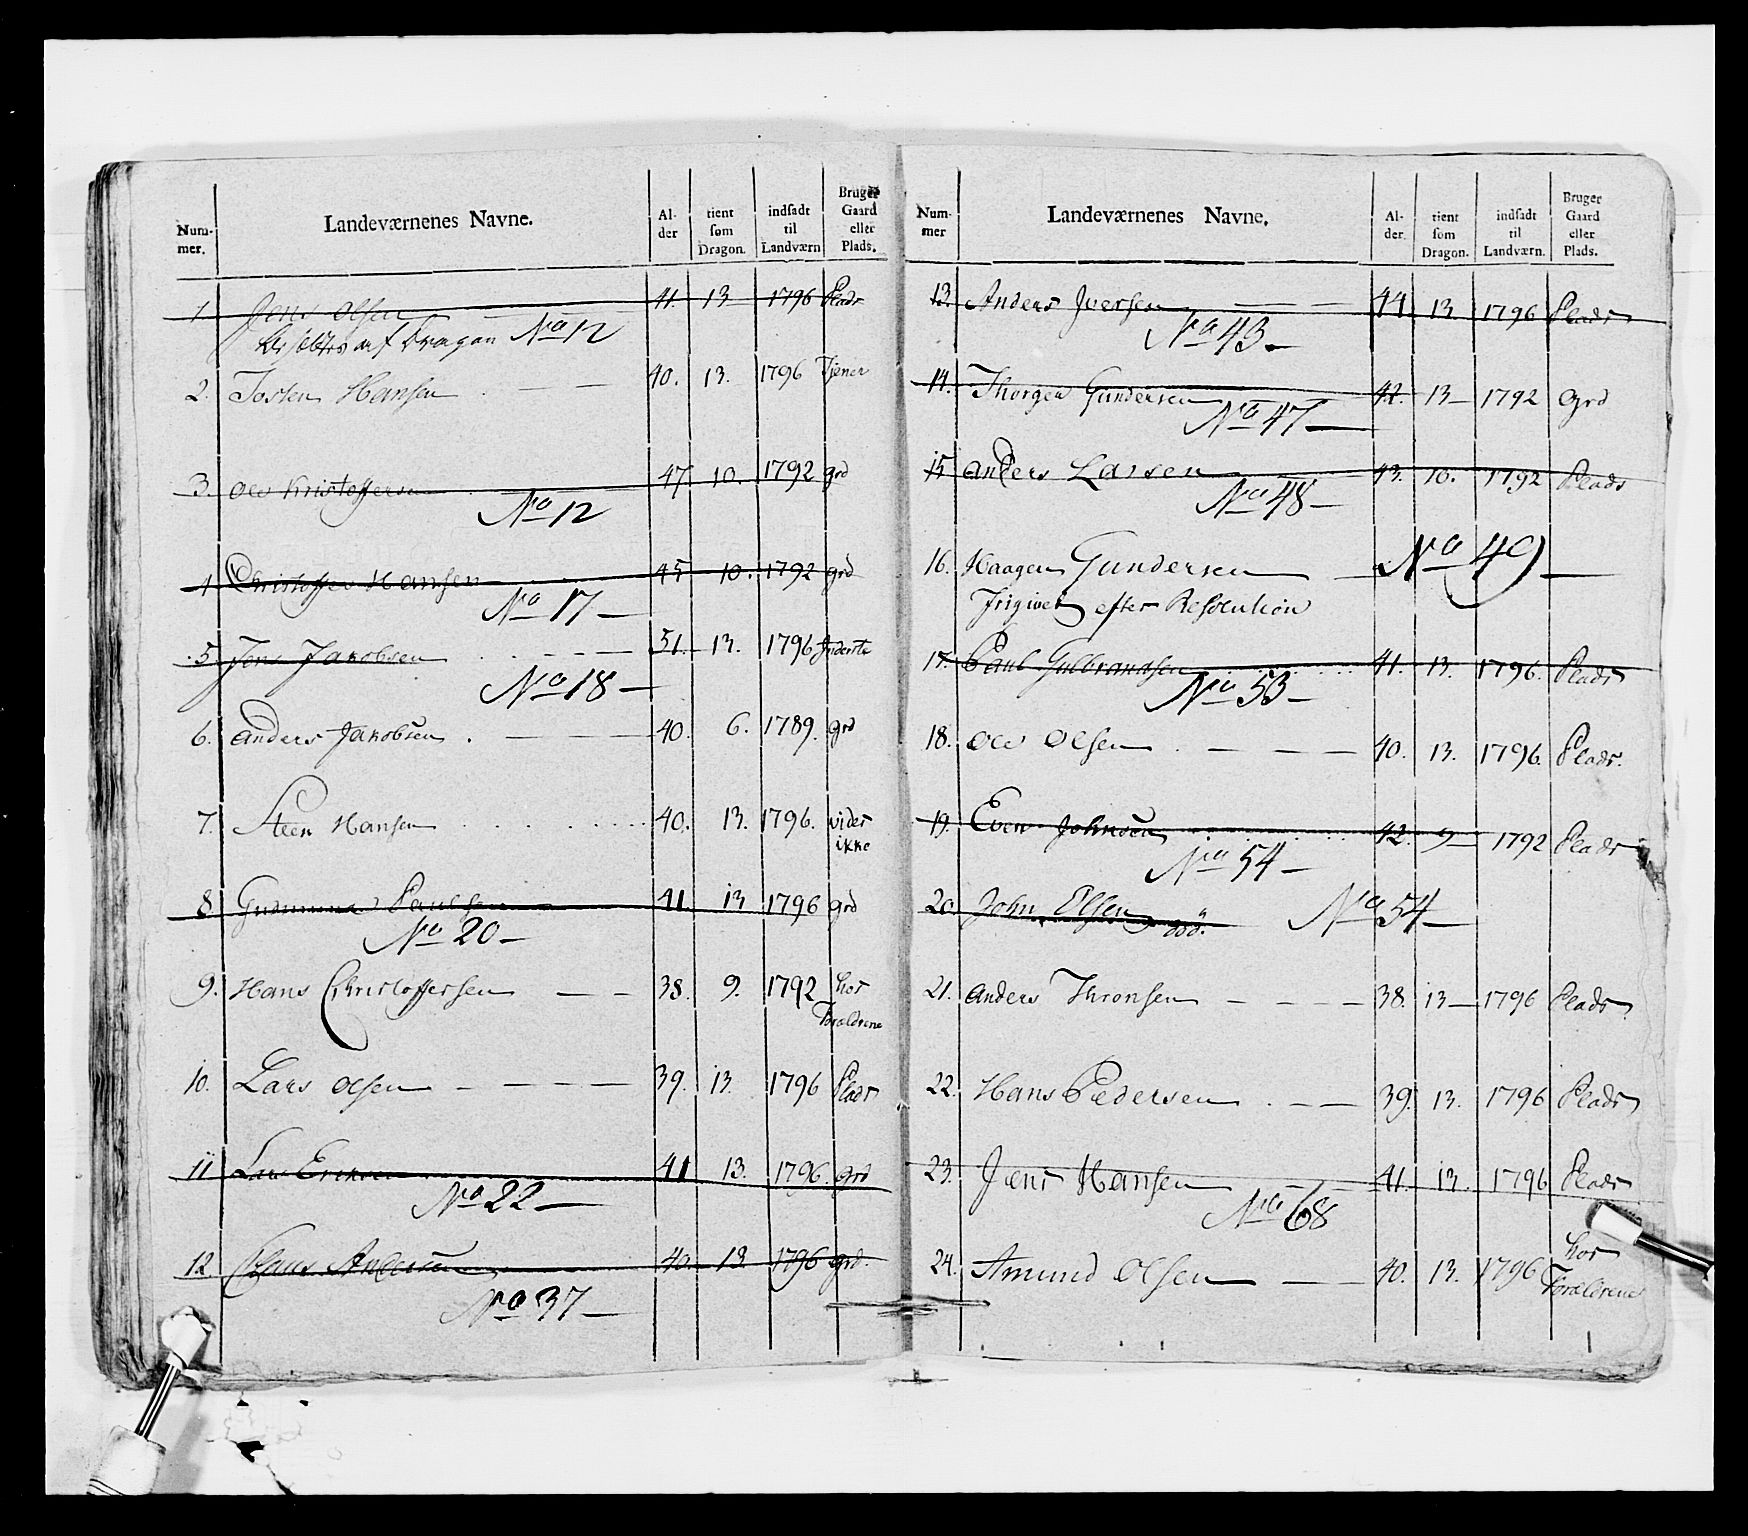 Num-
mer.
Landeværnenes Navne.
Al-
der
tient
som
Dragon.
indsadt
til
Landværn
Bruger
Gaard
eller
Plads.
1. Jens Olsen 41. 13 1796 Plads
af Dragon No 12
2. Josten Hansen 40. 13. 1796 Tjener
3. Ole Kristoffersen 47 10. 1792 grd
No 12
4 Christoffer Hansen 45 10. 1792 grd
No 17
5. Jens Jakobsen 51. 13. 1796 Inderste
No 18
6. Anders Jakobsen 40. 6. 1789. grd
7. Steen Hansen 40. 13. 1796. vides
ikke
8. Gudmund Paulsen 41 13 1796 grd
No 20
9. Hans Christoffersen 38. 9. 1792 hos
Forældrene
10. Lars Olsen 39. 13 1796 Plads
11 Lars Eriksen 41 13. 1796. grd
No 22
12 Claus Andersen 40. 13. 1796 grd.
No 37
Num-
mer
Landeværnenes Navne.
Al-
der.
tient
som
Dragon.
indsadt
til
Landværn.
Bruger
Gaard
eller
Plads.
13. Anders Iversen 44. 13. 1796 Plads
No 43
14. Thorger Gundersen 42. 13 1792 Grd
No 47
15 Anders Larsen 43. 10. 1792 Plads
No 48
16. Haagen Gundersen No 49
Frigivet efter Resolution
17. Paul Gulbrandsen 41. 13. 1796. Plads
No 53
18. Ole Olsen 40. 13. 1796. Plads.
19. Even Johnsen 42. 9 1792 Plads
No 54
20. John Olsen død. No 54
21. Anders Thronsen 38. 13 1796 Plads.
22. Hans Pedersen 39. 13. 1796 Plads
23. Jens Hansen 41. 13. 1796 Plads
No 68
24. Amund Olsen 40. 13. 1796 hos
Forældrene